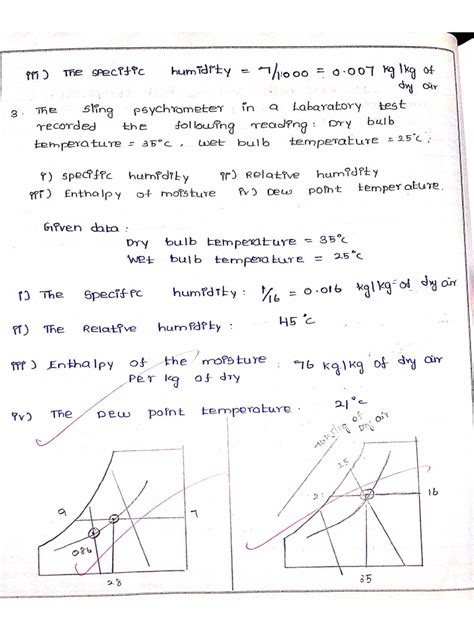 iii) The specific humidity = 7/1000 = 0.007 kg/kg of
dry air
3. The sling psychrometer in a Labaratory test
recorded the following reading: Dry bulb
temperature = 35°c, wet bulb temperature = 25°c.
i) specific humidity ii) Relative humidity
iii) Enthalpy of moisture iv) Dew point temperature.
Given data :
Dry bulb temperature = 35°c
Wet bulb temperature = 25°c
i) The Specific humidity : 1/16 = 0.016 kg/kg of dry air
ii) The Relative humidity : 45°c
iii) Enthalpy of the moisture : 76 kg/kg of dry air
Per kg of dry
iv) The Dew point temperature. 21°c
9
7
086
28
of
Dry air
25
2
16
35